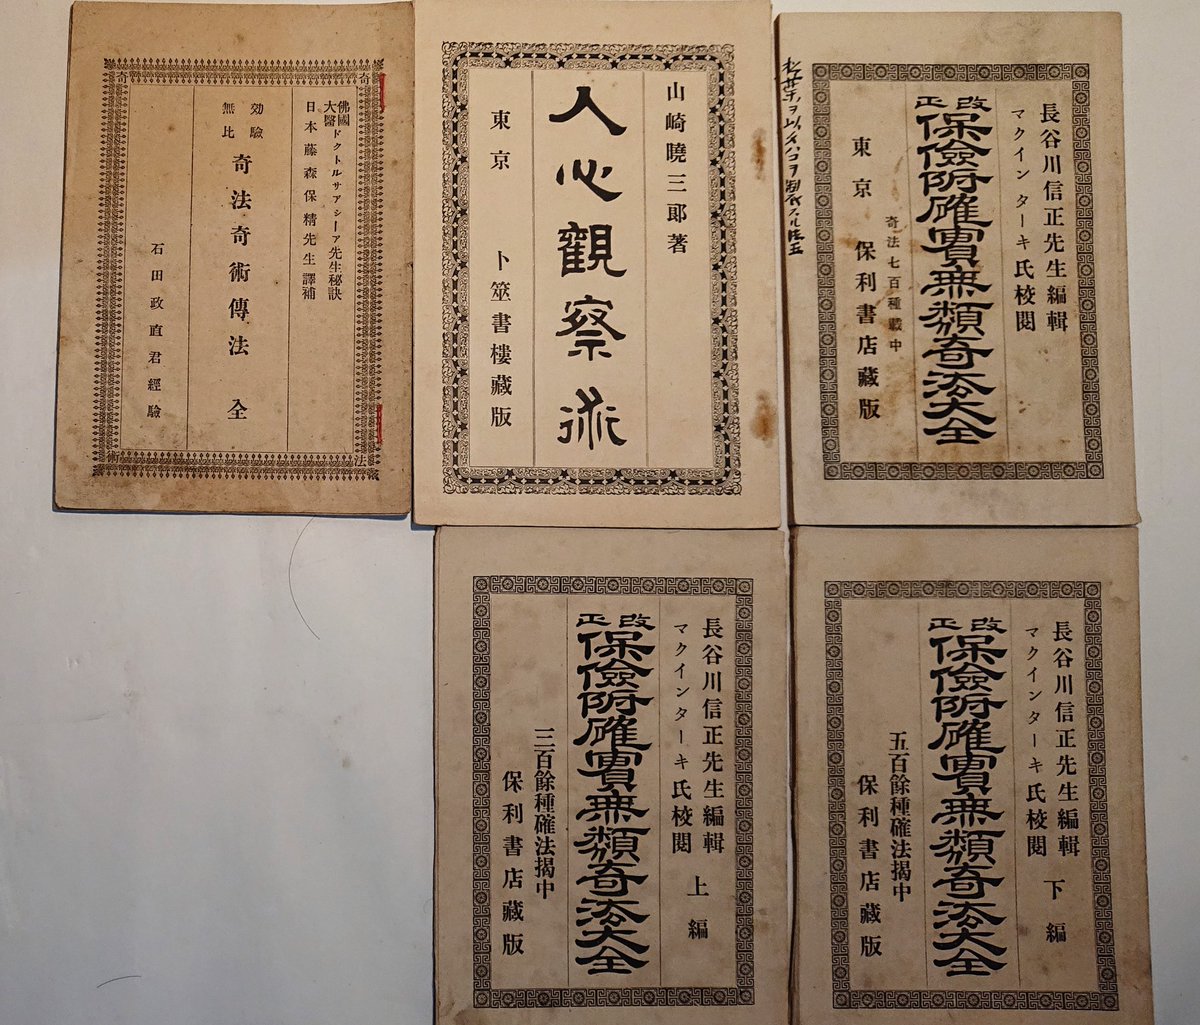 長谷川信正先生編輯
マクインターキ氏校閲
改正
保儉附確實無類奇法大全
奇法七百種載中
東京 保利書店藏版
山崎曉三郎著
人心觀察術
東京 卜筮書樓藏版
奇
法
奇
術
佛國大醫ドクトルサアシーア先生秘訣
日本藤森保精先生譯補
効驗無比 奇法奇術傳法 全
石田政直君經驗
長谷川信正先生編輯
マクインターキ氏校閲
下編
改正
保儉附確實無類奇法大全
五百餘種確法揭中
保利書店藏版
長谷川信正先生編輯
マクインターキ氏校閲
上編
改正
保儉附確實無類奇法大全
三百餘種確法揭中
保利書店藏版